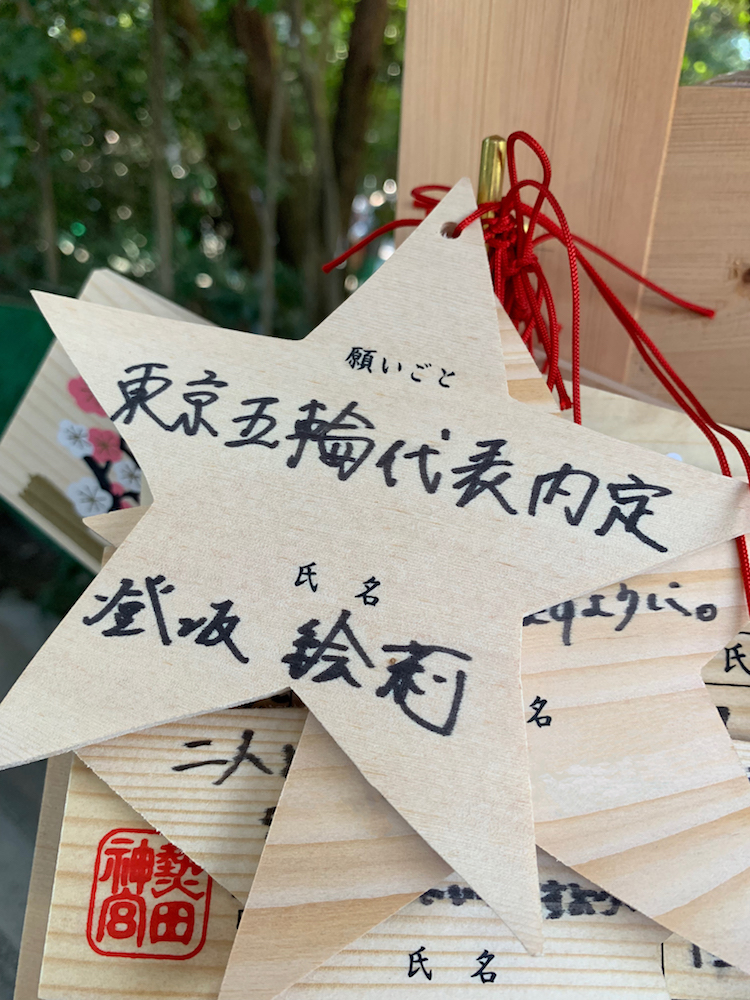 願いごと
東京五輪代表内定
氏 名
登坂 絵莉
名
二人
熱田
神宮
氏 名
氏